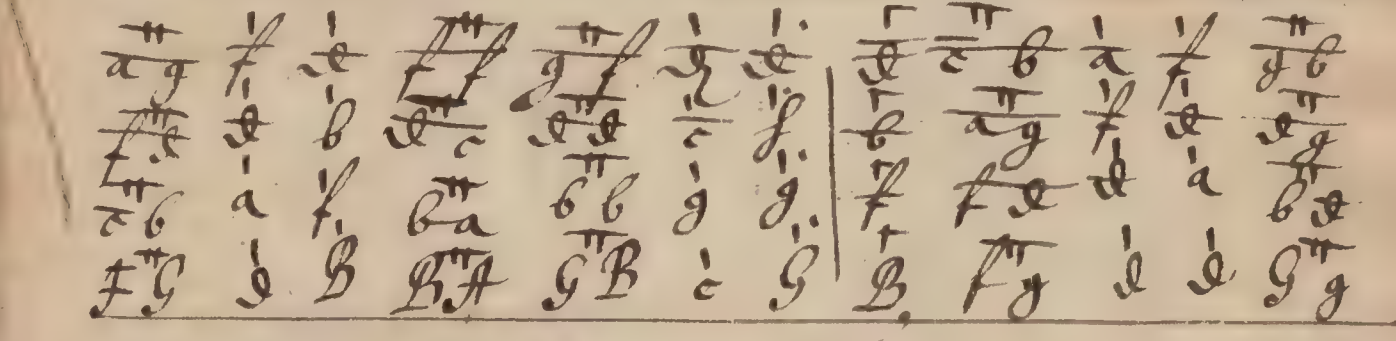 a g f d f f g f g d d c b a f g b
f d d b d c d d c f b a g f d d g
c b a f b a b b g g f f d d a b d
F G d B B A G B c G B f g d d G g